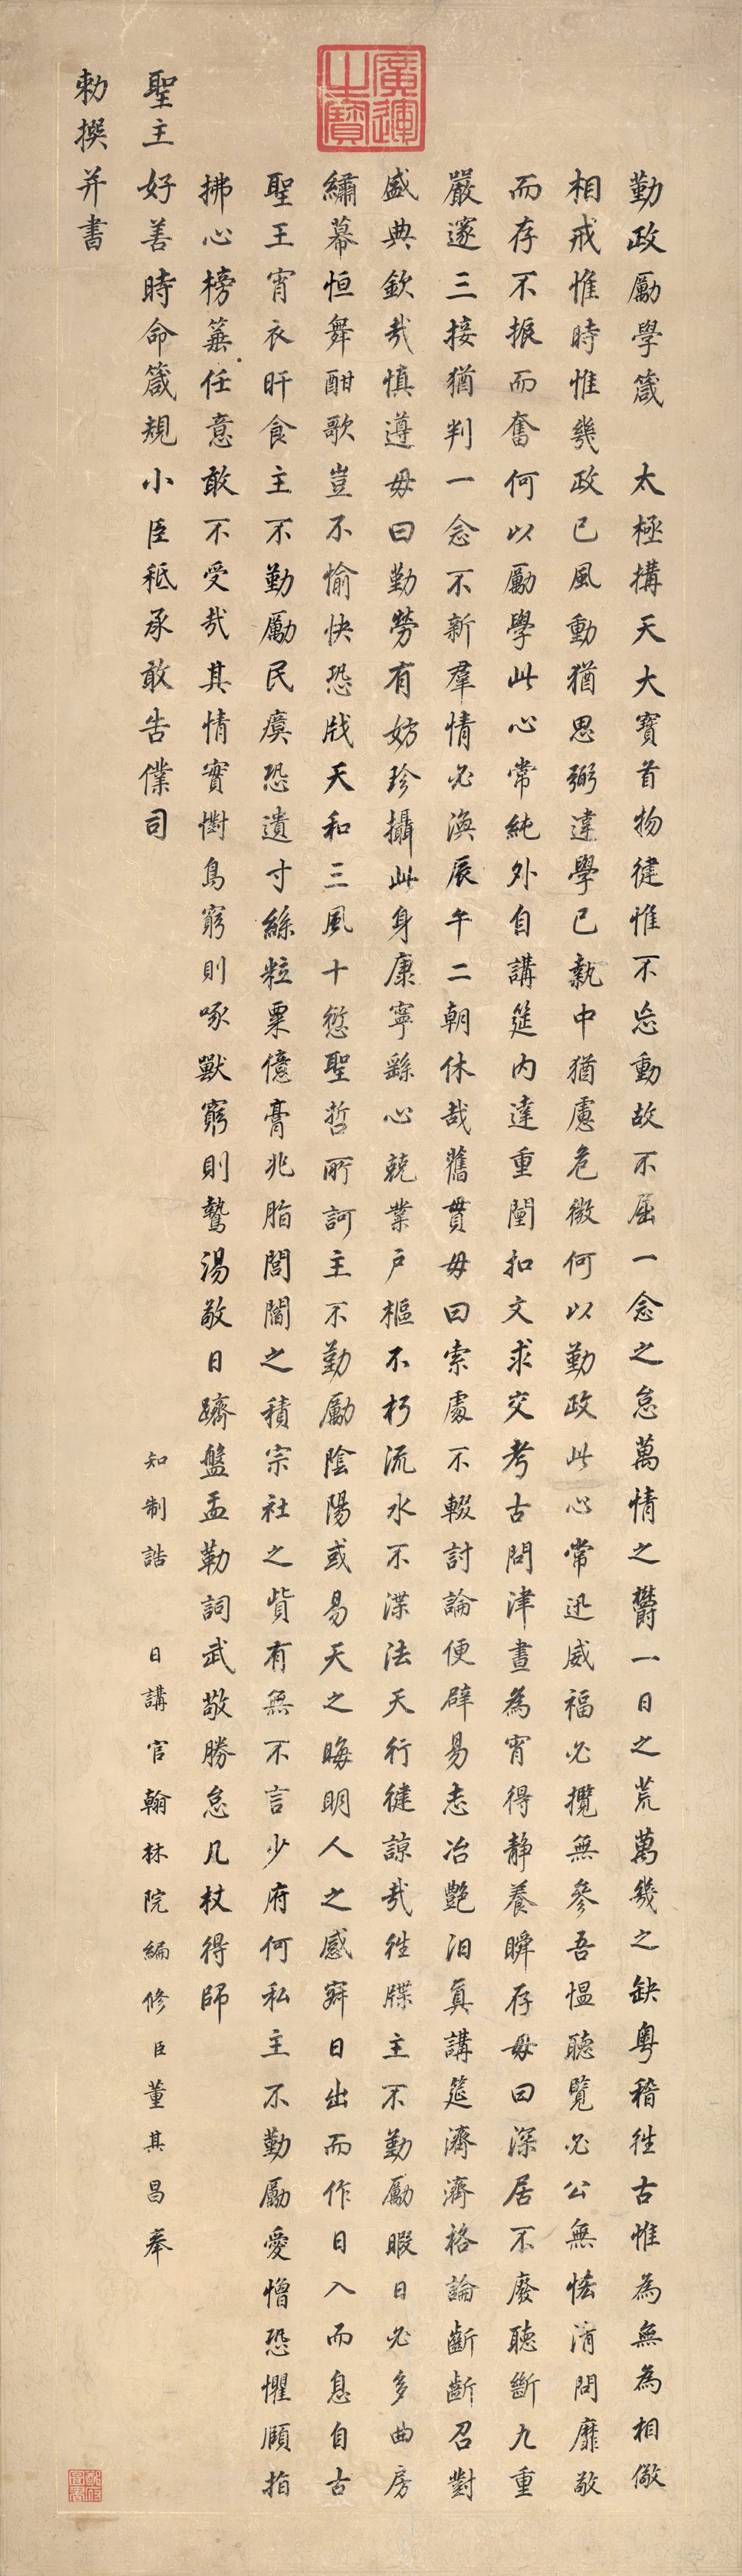 廣運之寶
勤政勵學箴　太極搆天大寶首物健惟不怠動故不屈一念之怠萬情之鬱一日之荒萬幾之缺粤稽往古惟為無為相儆
相戒惟時惟幾政已風動猶思弼違學已執中猶慮危微何以勤政此心常迅威福必攬無參吾愠聽覽必公無恡清問靡敢
而存不振而奮何以勵學此心常純外自講筵內達重闈扣文求交考古問津晝為宵得靜養瞬存毋曰深居不廢聽斷九重
嚴邃三接猶判一念不新羣情必渙辰午二朝休哉舊貫毋曰索處不輟討論便辟易志冶艷汨真講筵濟濟格論齗齗召對
盛典欽哉慎遵毋曰勤勞有妨珍攝此身康寧繇心兢業戶樞不朽流水不渫法天行健諒哉往牒主不勤勵暇日必多曲房
繡幕恒舞酣歌豈不愉快恐戕天和三風十愆聖哲所訶主不勤勵陰陽或易天之晦明人之感寤日出而作日入而息自古
聖王宵衣旰食主不勤勵民瘼恐遺寸絲粒粟億膏兆脂閭閻之積宗社之貲有無不言少府何私主不勤勵愛憎恐懼頤指
拂心榜箠任意敢不受哉其情實懟鳥窮則啄獸窮則鷙湯敬日躋盤盂勒詞武敬勝怠几杖得師
聖主好善時命箴規小臣秪承敢告僕司　知制誥　日講官翰林院編修臣董其昌奉
勅撰并書